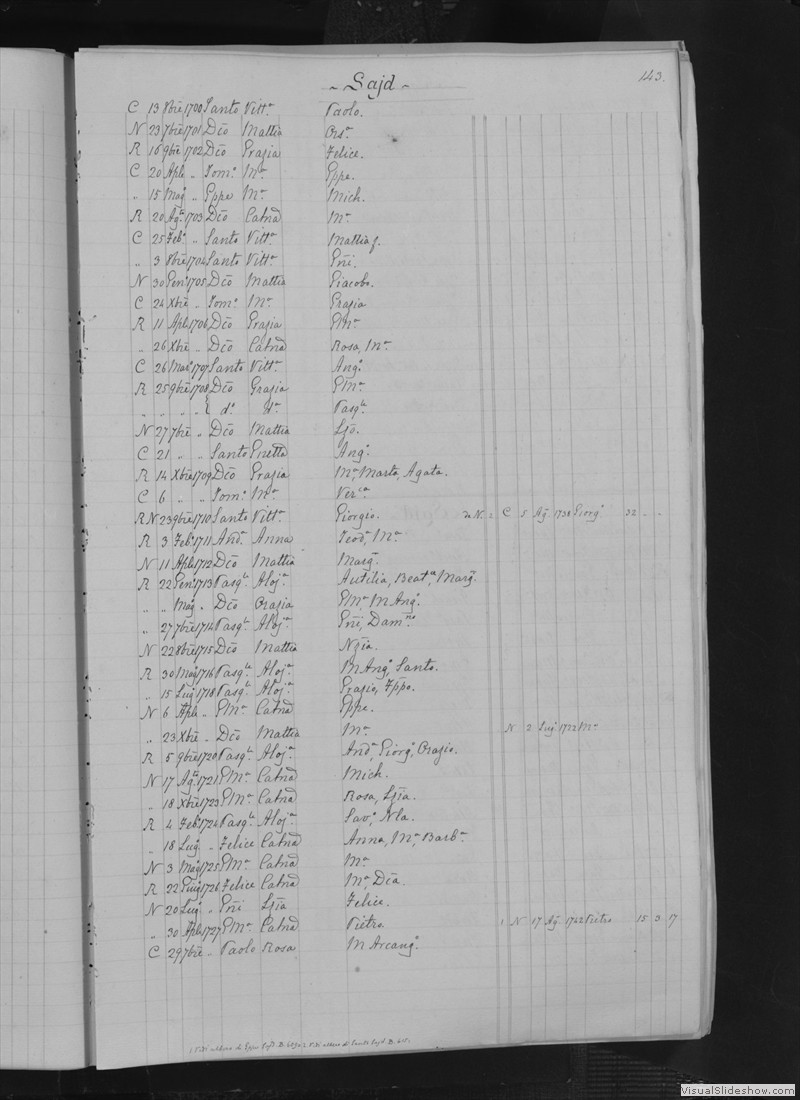 143.
~ Sajd ~
C 13 8bre 1700 Santo Vitta Paolo.
N 23 7bre 1701 Dco Mattia Orsa
R 16 9bre 1702 Dco Grazia Felice.
C 20 Aple „ Tomo Ma Gppe.
„ 15 Mago „ Gppe Ma Mich.
R 20 Aga 1703 Dco Catna Ma
C 25 Febo „ Santo Vitta Mattia f.
„ 3 8bre 1704 Santo Vitta Gni.
N 30 Geno 1705 Dco Mattia Giacobo.
C 24 Xbre „ Tomo Ma Grazia
R 11 Aple 1706 Dco Grazia GMa
„ 26 Xbre „ Dco Catna Rosa, Ma
C 26 Maro 1707 Santo Vitta Ango
R 25 9bre 1708 Dco Grazia GMa
„ „ „ „ { do Da Pasqle
N 27 7bre „ Dco Mattia Ljo.
C 21 „ „ Santo Pnetta Ango
R 14 Xbre 1709 Dco Grazia Ma, Marta, Agata.
C 6 „ „ Tomo Ma Verca
R N 23 9bre 1710 Santo Vitta Giorgio. N. 2 C 5 Ago 1738 Giorgo 32 - -
R 3 Febo 1711 Anda Anna Teoda, Ma
N 11 Aple 1712 Dco Mattia Marga
R 22 Geno 1713 Pasqle Aloja Autilia, Beata, Marga
„ „ Mago „ Dco Orazia GMa, M Ango
„ 27 7bre 1714 Pasqle Aloja Gni, Damno
N 22 8bre 1715 Dco Mattia Nzia.
R 30 Mago 1716 Pasqle Aloja M Ango, Santo.
„ 15 Lugo 1718 Pasqle Aloja Grazio, Fppo.
N 6 Aple „ GMa Catna Gppe.
„ 23 Xbre „ Dco Mattia Ma N 2 Lugo 1722 Ma
R 5 9bre 1720 Pasqle Aloja Anda, Giorgo, Orazio.
N 17 Aga 1721 GMa Catna Mich.
„ 18 Xbre 1723 GMa Catna Rosa, Ljia.
R 4 Febo 1724 Pasqle Aloja Savo, Nla.
„ 18 Lugo „ Felice Catna Anna, Ma, Barba
N 3 Mago 1725 GMa Catna Ma
R 22 Giugo 1726 Felice Catna Ma, Dca.
N 20 Lugo „ Gni Ljia Felice.
„ 30 Aple 1727 GMa Catna Pietro. 1 N 17 Ago 1762 Pietro 15 3 17
C 29 7bre „ Paolo Rosa M Arcango
VisualSlideshow.com